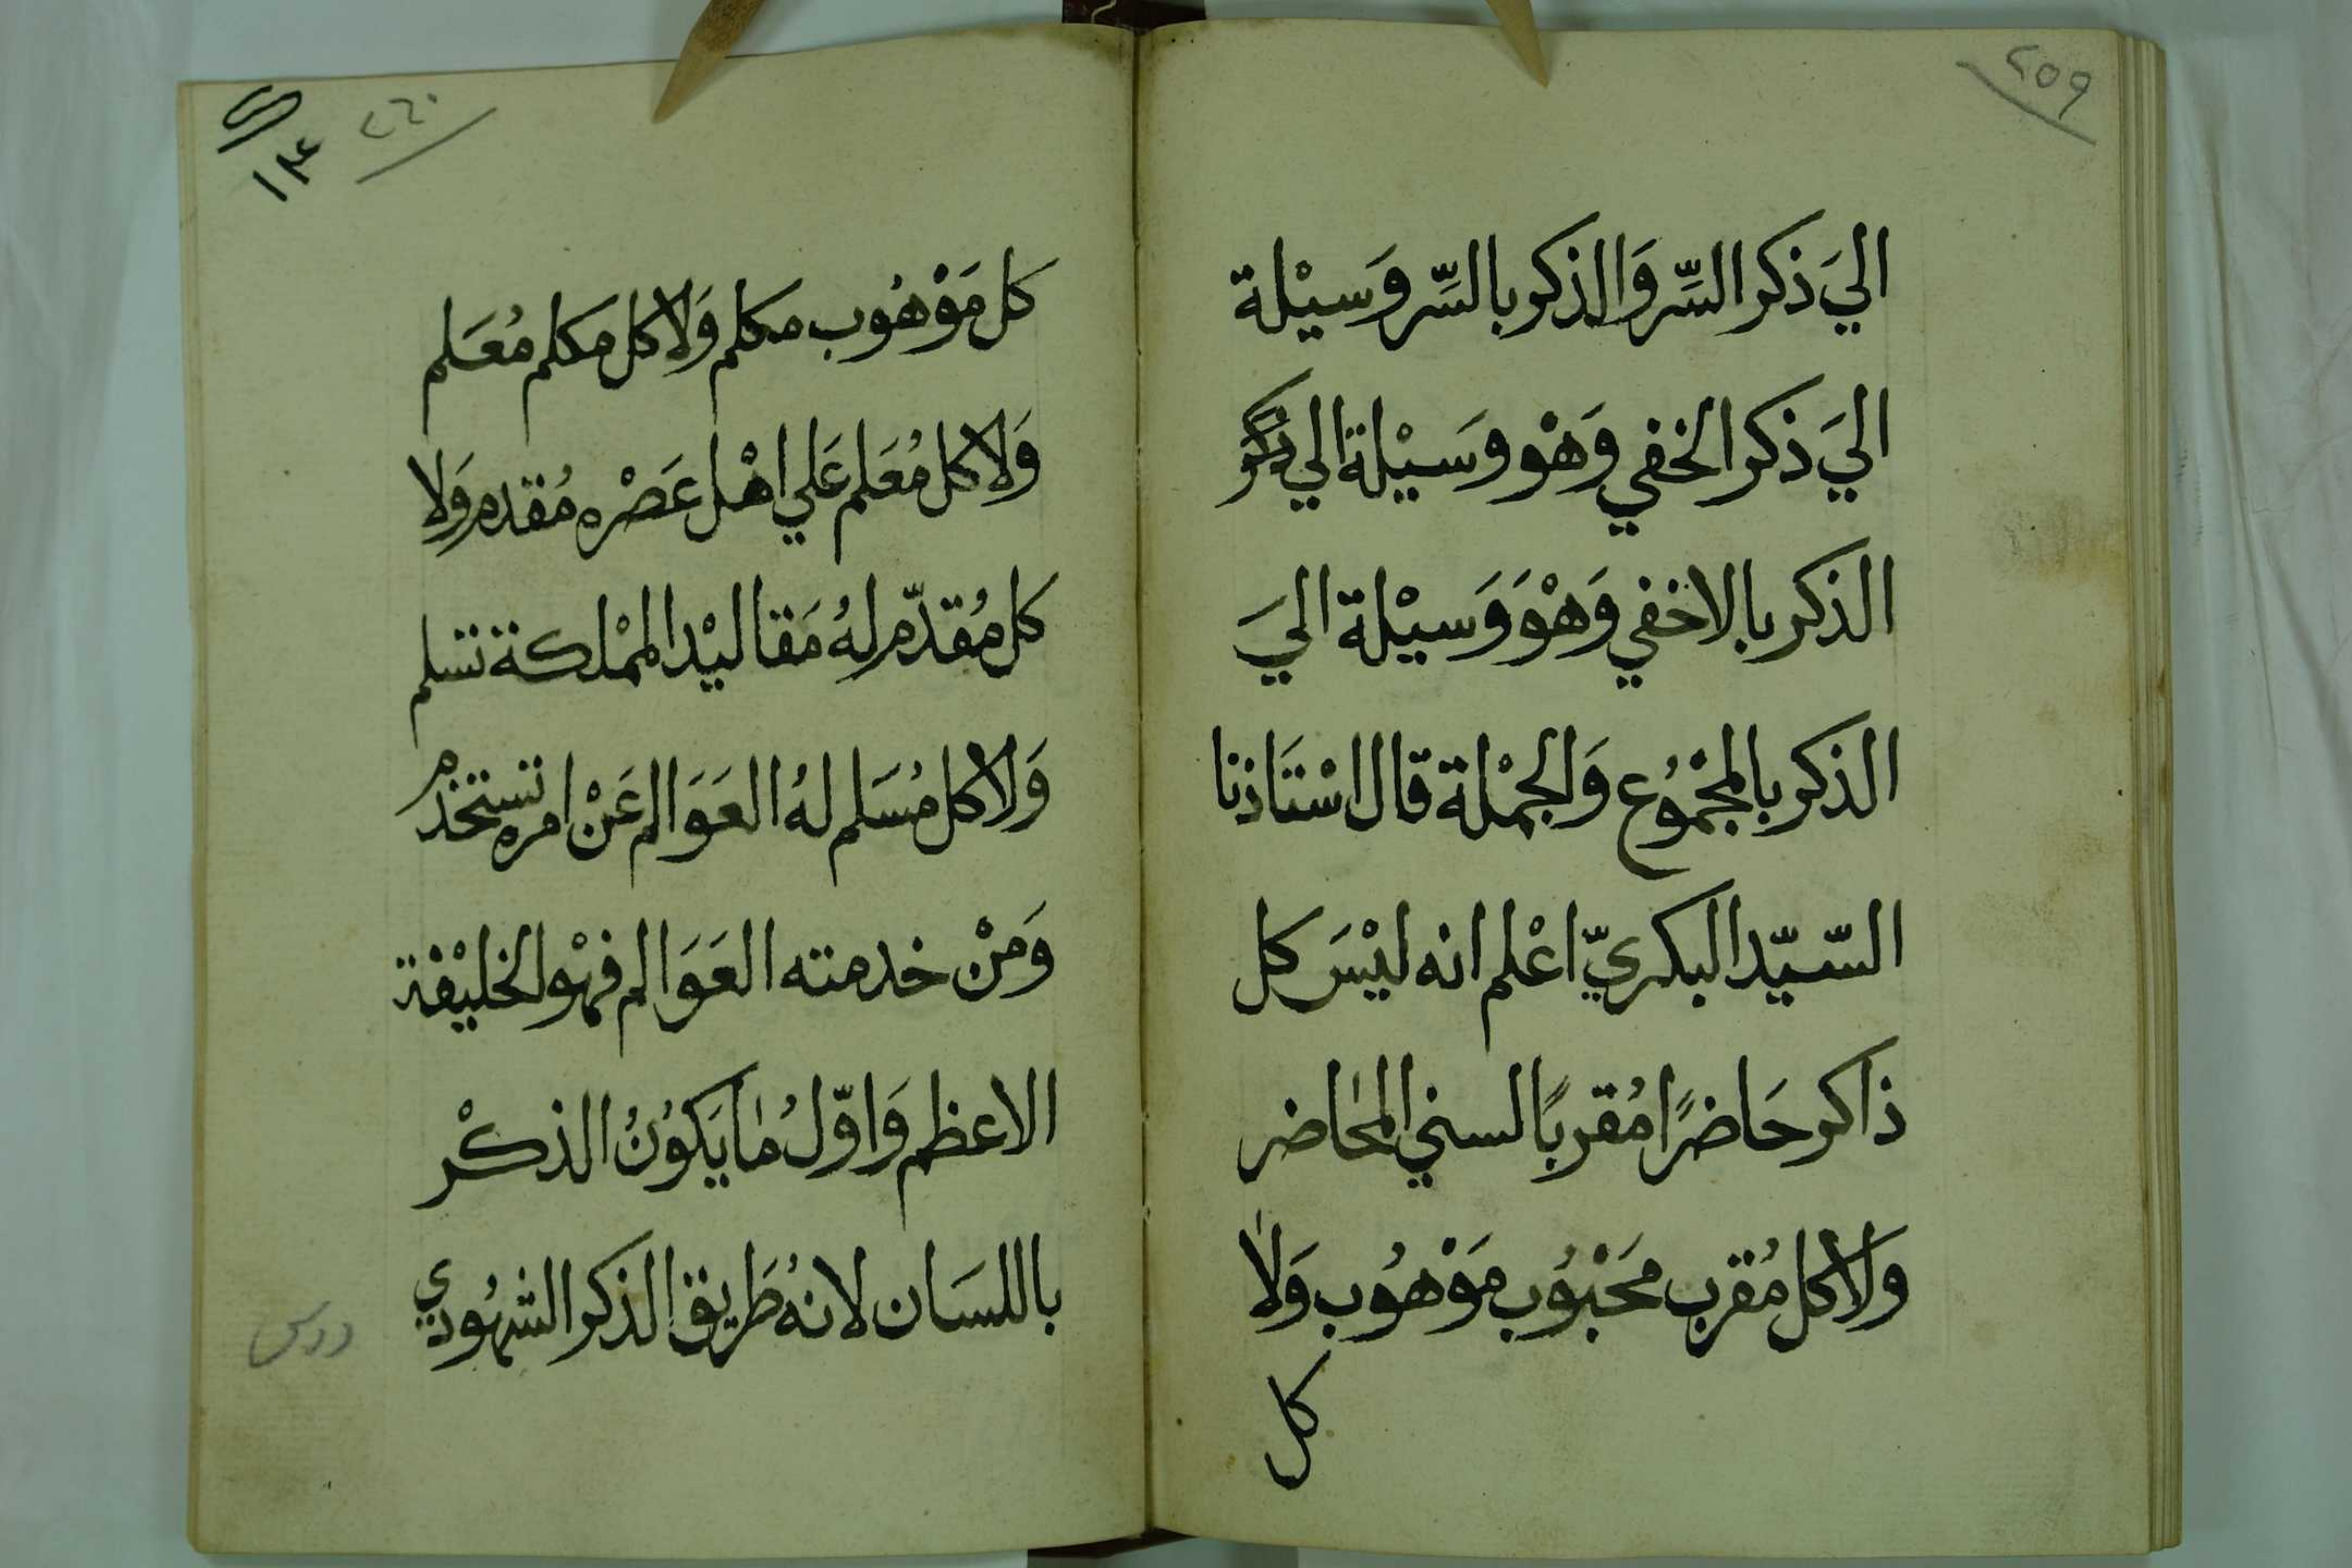 ٢٥٩
اليَ ذكر السِّر وَالذكر بالسِّر وَسيْلة
اليَ ذكر الخفي وَهْو وسَيْلة الي ذكر
الذكر بالاخفي وَهْوَ وَسيْلة اليَ
الذكر بالمجْمُوُع وَالجمْلة قال اسْتَاذنا
السّيّد البكريّ اعْلم انه ليْسَ كل
ذاكر حَاضرًا مُقربًا لسني المحاضر
وَلا كل مُقرب محَبْوُب مَوْهُوب وَلا
كل
٢٦٠
١٣
كل مَوْهُوب مكلم وَلا كل مكلم مُعَلم
وَلا كل مُعَلم عَلي اهْل عَصْره مُقدم وَلا
كل مُقدّم لهُ مَقاليْد الممْلكة تسلم
وَلا كل مُسَلم لهُ العَوَالم عَنْ امره تستخدم
وَمنْ خدمته العَوَالم فهْو الخليْفة
الاعظم وَاوّلُ مَا يَكوُنُ الذكْر
باللسَان لانهُ طَريق الذكر الشهُودي